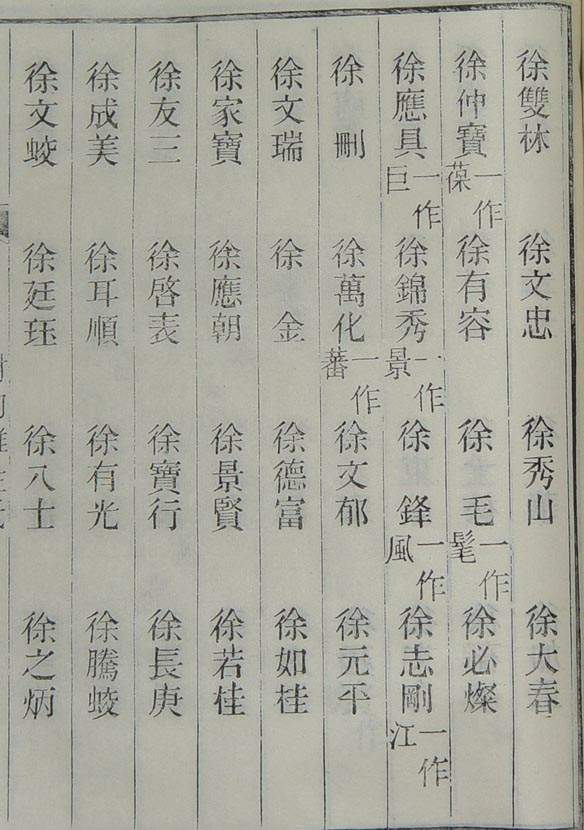 徐雙林　徐文忠　徐秀山　徐大春
徐仲寶一作葆　徐有容　徐毛一作髦　徐必燦
徐應具一作巨　徐錦秀一作景　徐鋒一作風　徐志剛一作江
徐刪　徐萬化一作蕃　徐文郁　徐元平
徐文瑞　徐金　徐德富　徐如桂
徐家寶　徐應朝　徐景賢　徐若桂
徐友三　徐啓表　徐寶行　徐長庚
徐成美　徐耳順　徐有光　徐騰蛟
徐文蛟　徐廷珏　徐八士　徐之炳